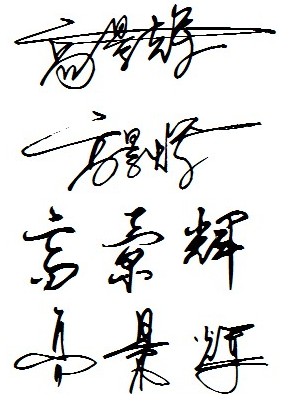 高景辉
高景辉
高景輝
高景辉